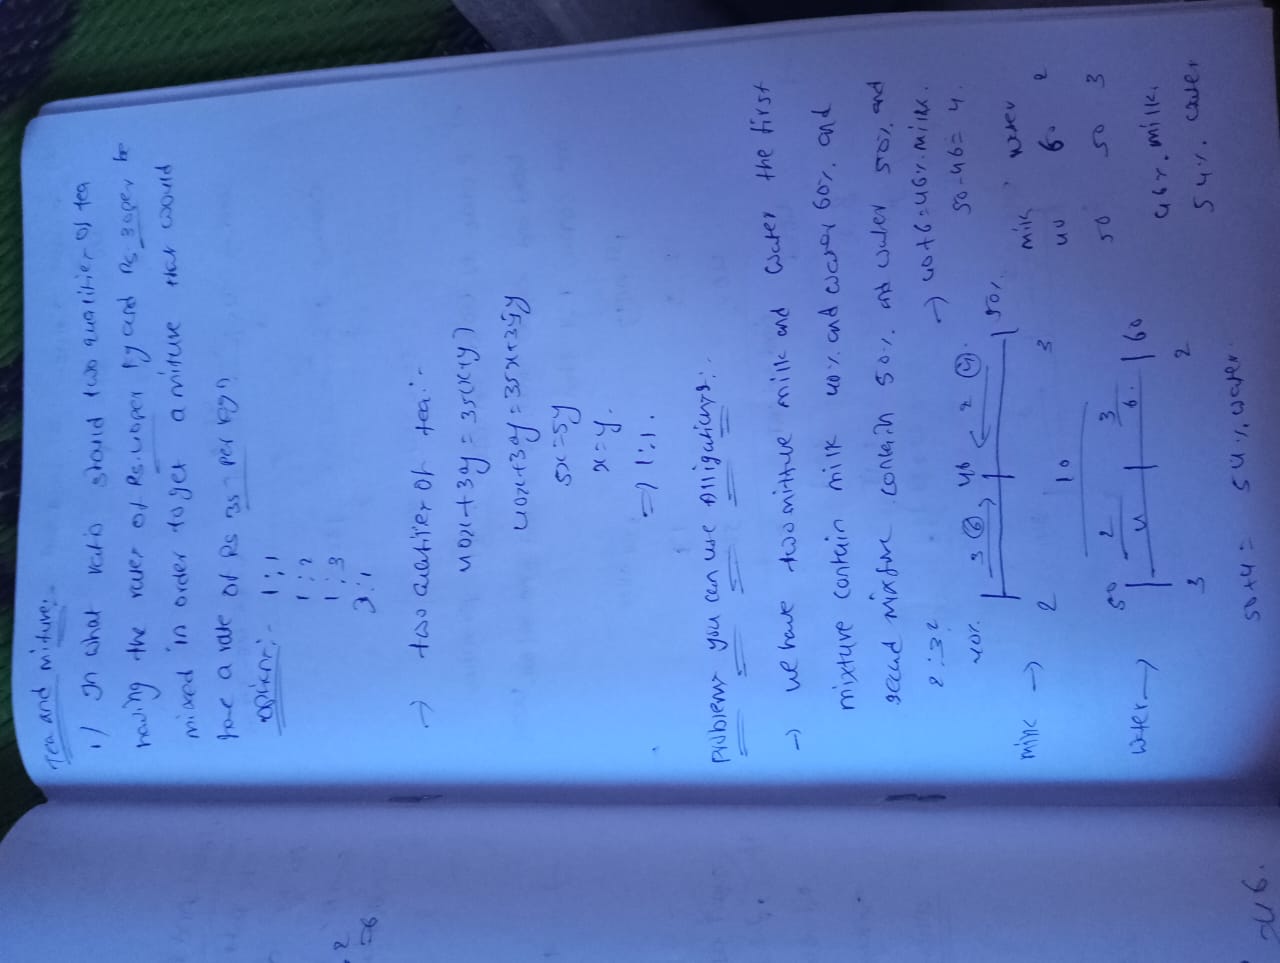 Tea and mixture:-
1) In what ratio should two qualities of tea
having the rates of Rs. 40 per kg and Rs 30 per kg be
mixed in order to get a mixture that would
have a rate of Rs 35 per kg?
option:- 1:1
1:2
1:3
3:1
→ two qualities of tea:-
40x+30y = 35(x+y)
40x+30y = 35x+35y
5x=5y
x=y.
⇒ 1:1.
problems you can use Alligations:.
→ we have two mixture milk and water the first
mixture contain milk 40% and water 60% and
second mixture contain 50% and water 50% and
2:3?
→ 40+6=46% milk.
50-46= 4.
40%. 3 6 46 2 4 50%
milk → 2 10 3
milk water
40 60 2
50 50 3
50 2 3 60
water → 4 6
3 2
46% milk.
54% water
50+4= 54% water.
2
=6
=46.